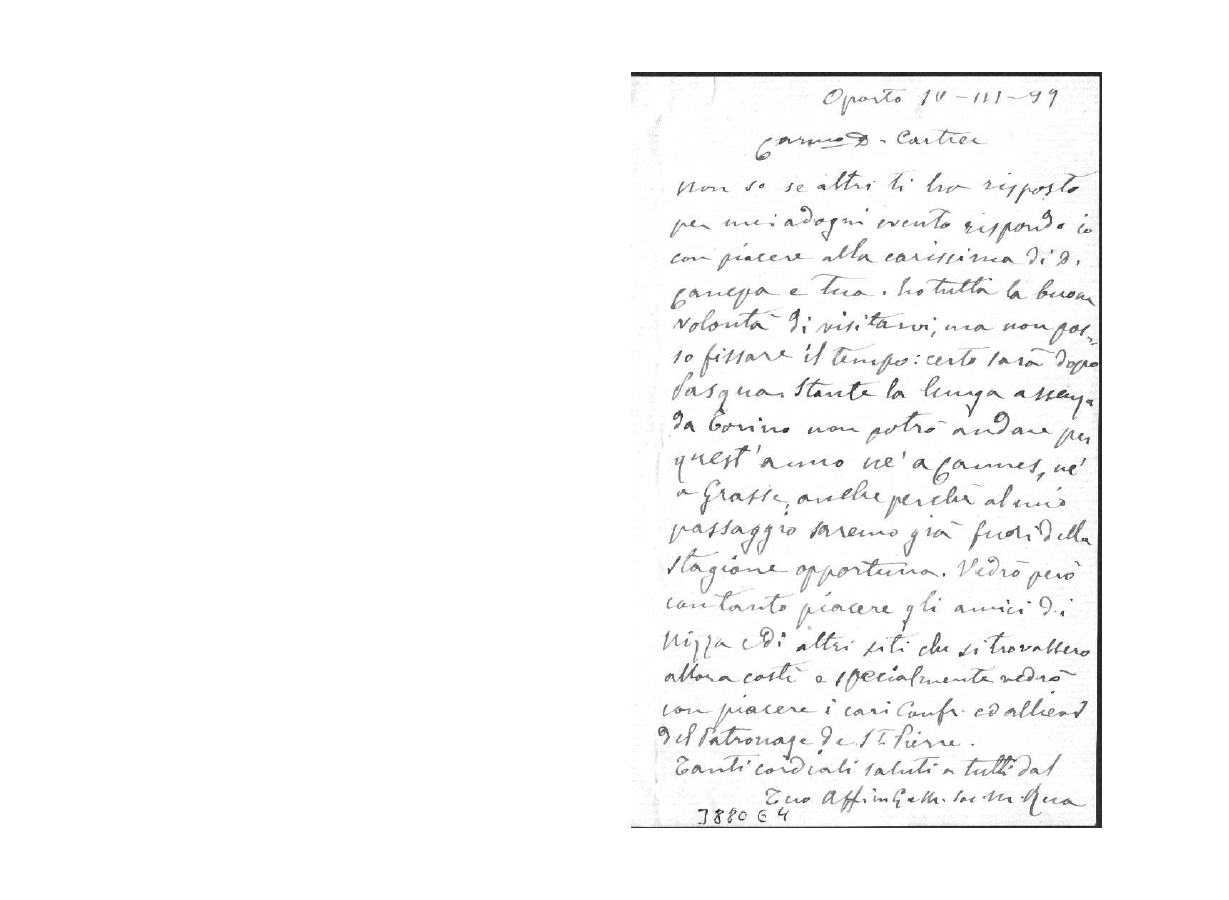 Oporto 10-III-99
Carmo D. Cartier
Non so se altri ti ha risposto
per me: ad ogni evento rispondo io
con piacere alla carissima di D.
Canepa e tua. Ho tutta la buona
volontà di visitarvi, ma non pos-
so fissare il tempo: certo sarà dopo
Pasqua. Stante la lunga assenza
da Torino non potrò andare per
quest'anno nè a Cannes, nè
a Grasse, anche perchè al mio
passaggio saremo già fuori della
stagione opportuna. Vedrò però
con tanto piacere gli amici di
Nizza e di altri siti che si trovassero
allora costì e specialmente vedrò
con piacere i cari Confr. ed allievi
del Patronage de St Pierre.
Tanti cordiali saluti a tutti dal
Tuo Affm in G. e M. Sac. M. Rua
3880 E 4